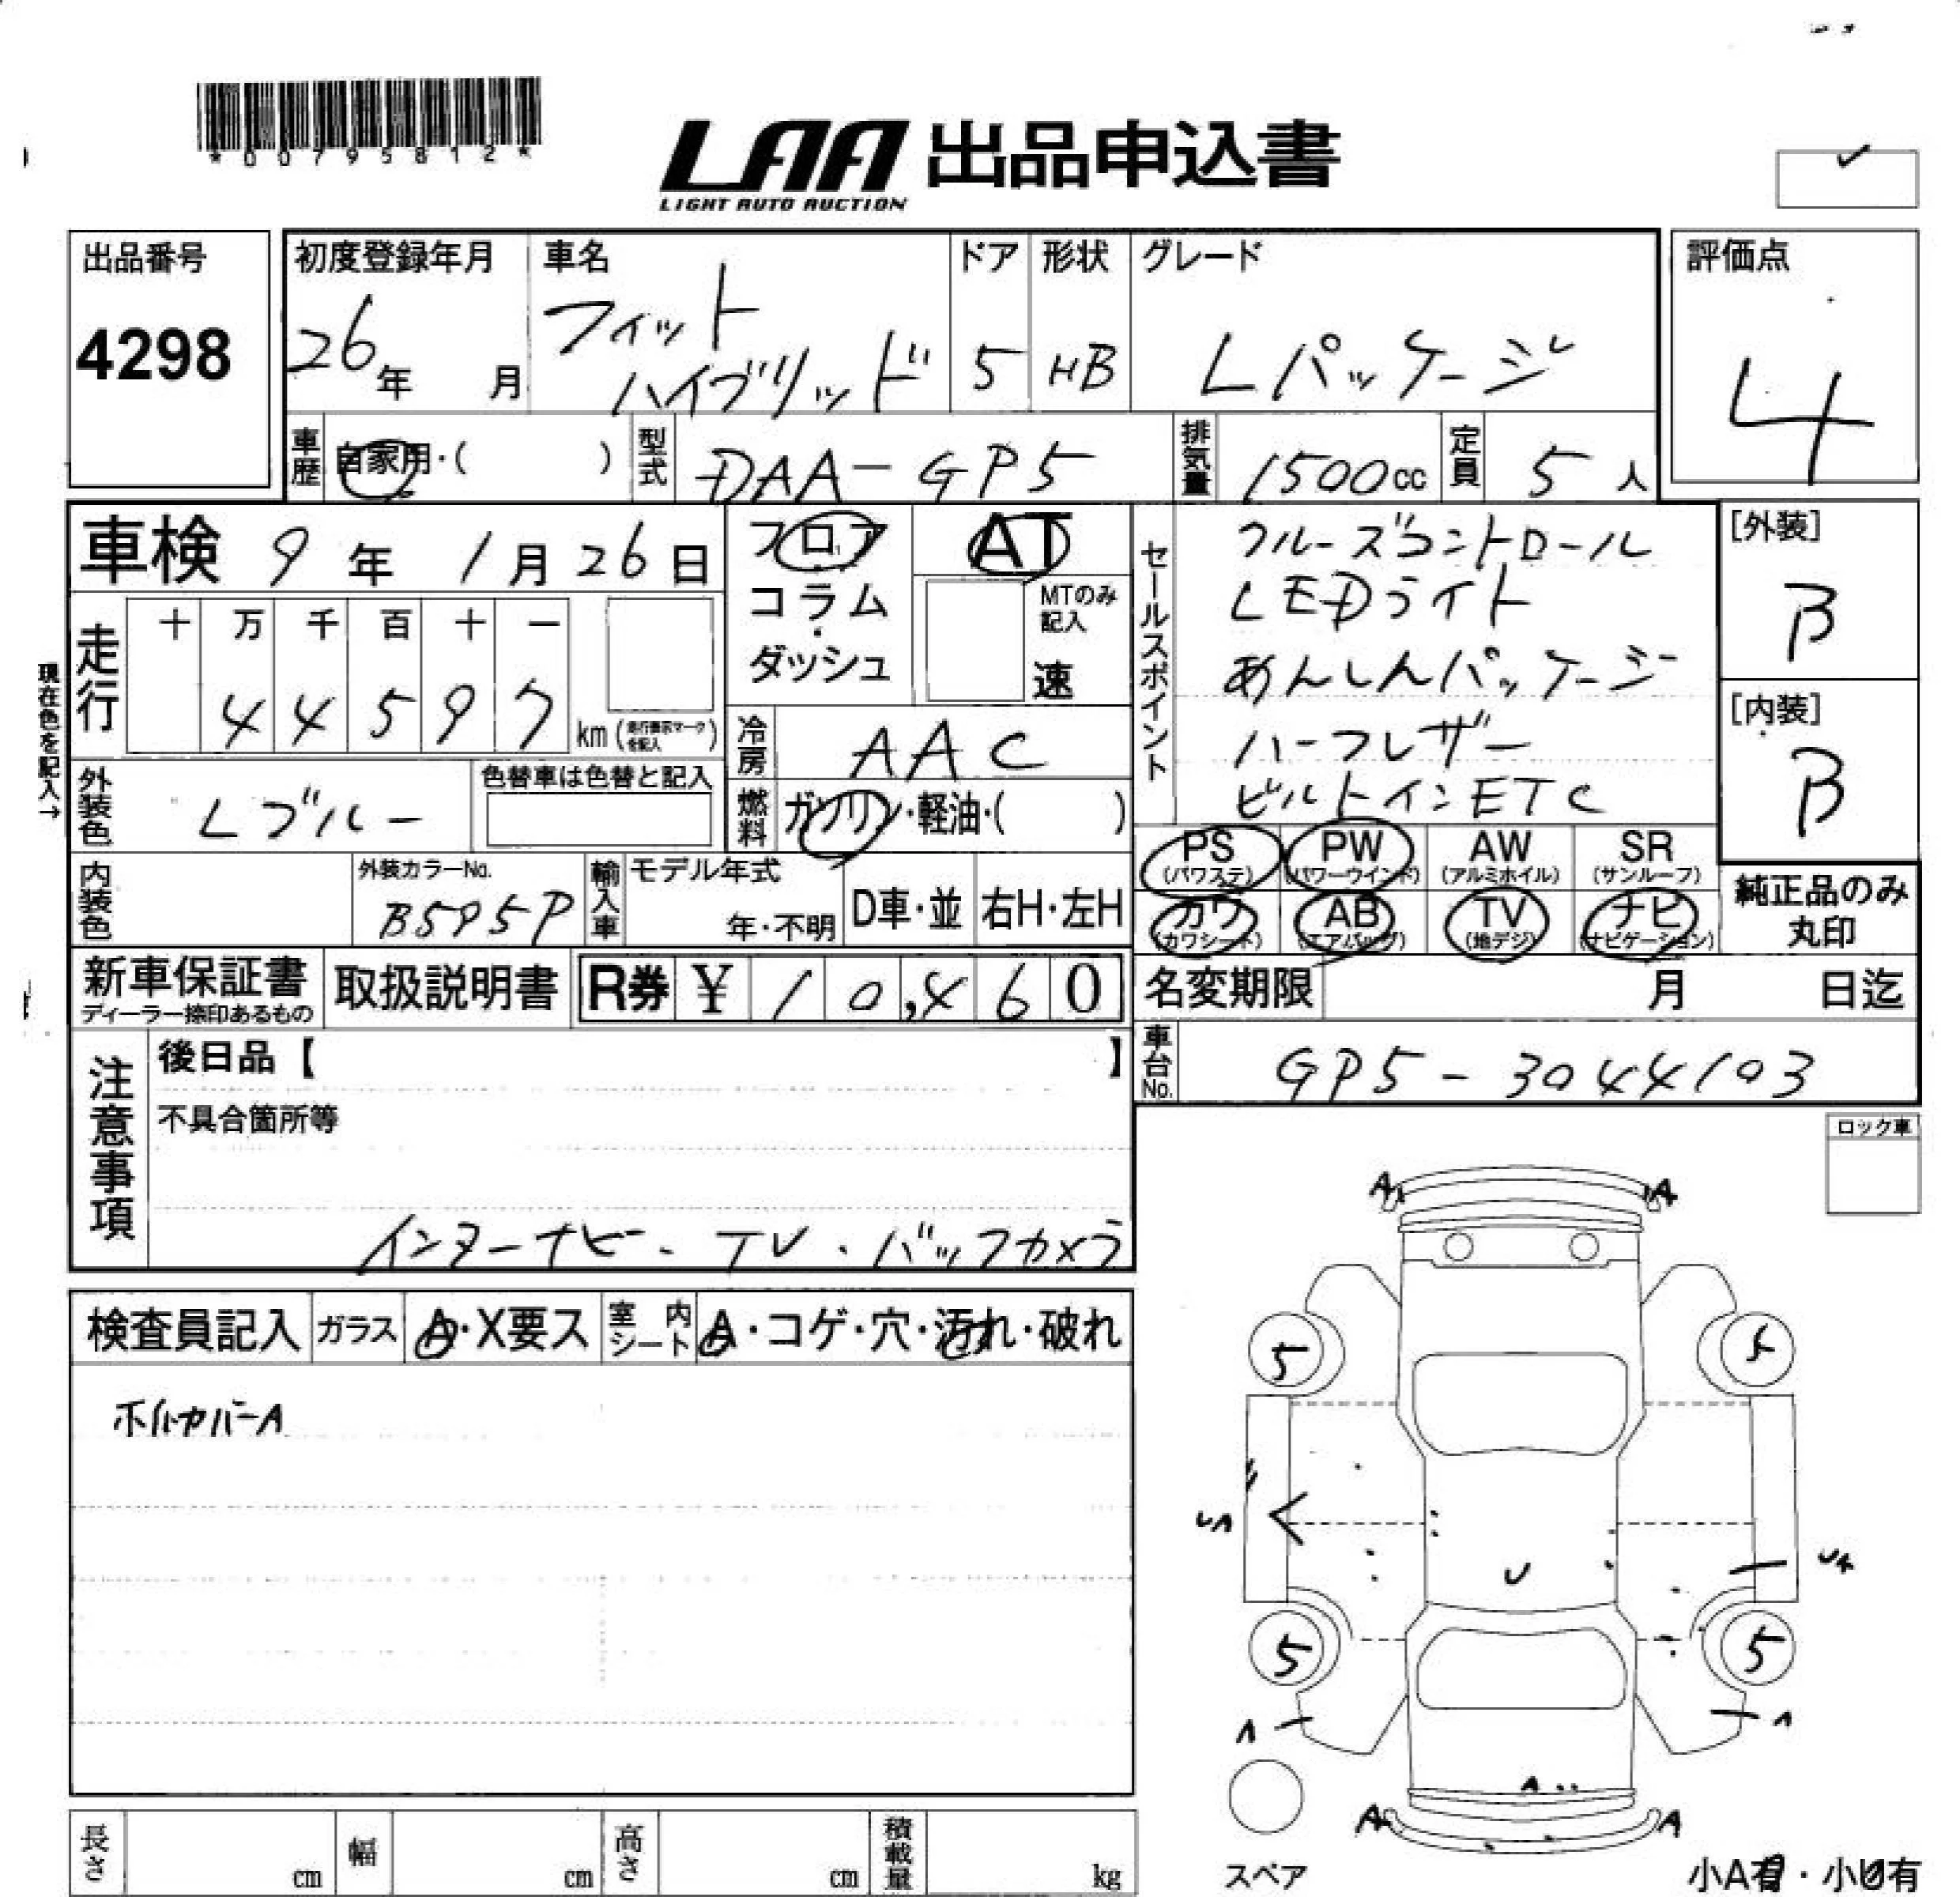 *00795812*
LAA 出品申込書
LIGHT AUTO AUCTION
出品番号
4298
初度登録年月
26年 月
車名
フィット
ハイブリッド
ドア
5
形状
HB
グレード
Lパッケージ
評価点
4
車歴 自家用・( )
型式 DAA-GP5
排気量 1500cc
定員 5人
車検 9年1月26日
フロア
コラム
・
ダッシュ
AT
MTのみ
記入
速
セールスポイント
クルーズコントロール
LEDライト
あんしんパッケージ
ハーフレザー
ビルトインETC
[外装]
B
[内装]
B
現在色を記入→
走行
十 万 千 百 十 一
4 4 5 9 7
km (走行表示マークを記入)
冷房 AAC
燃料 ガソリン・軽油・( )
外装色 Lブルー
色替車は色替と記入
内装色
外装カラーNo.
B595P
輸入車
モデル年式
年・不明
D車・並
右H・左H
PS
(パワステ)
PW
(パワーウインド)
AW
(アルミホイル)
SR
(サンルーフ)
カワ
(カワシート)
AB
(エアバッグ)
TV
(地デジ)
ナビ
(ナビゲーション)
純正品のみ
丸印
新車保証書
ディーラー捺印あるもの
取扱説明書
R券 ¥ 10,460
名変期限 月 日迄
車台No. GP5-3044103
注意事項
後日品【 】
不具合箇所等
インターナビ・TV・バックカメラ
ロック車
検査員記入
ガラス A・X要ス
室内シート A・コゲ・穴・汚れ・破れ
ホイルカバーA
A A
5 5
UA
U
UA
5 5
A A
A
A A
スペア
小A有・小U有
長さ cm
幅 cm
高さ cm
積載量 kg